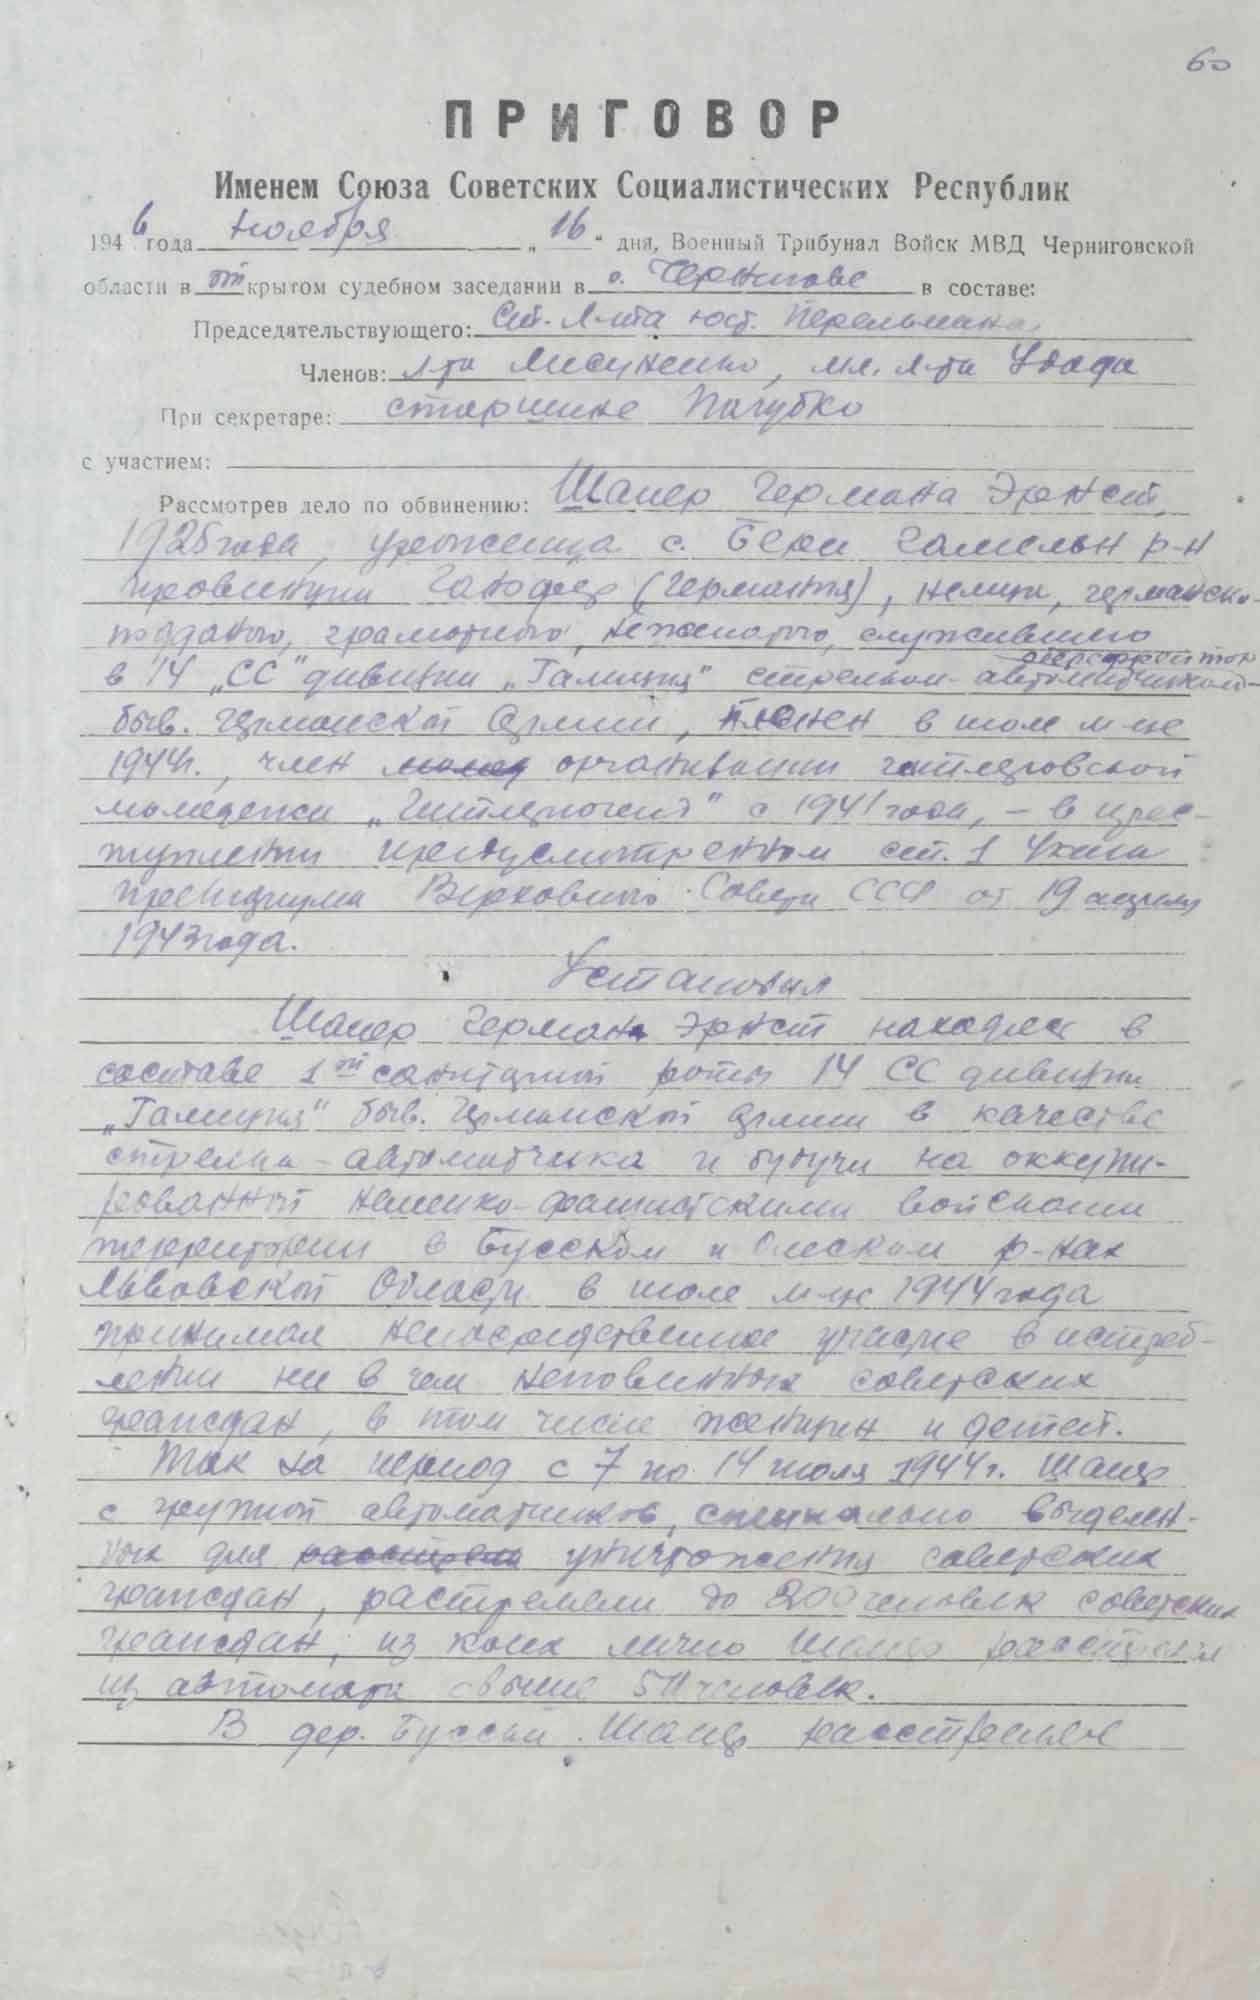 60
ПРИГОВОР
Именем Союза Советских Социалистических Республик
1946 года ноября „16“ дня, Военный Трибунал Войск МВД Черниговской
области в открытом судебном заседании в г. Чернигове в составе:
Председательствующего: Ст. Л-та юст. Перельмана
Членов: л-та Лисиченко, мл. л-та
При секретаре: старшине
с участием:
Рассмотрев дело по обвинению: Шапер Германа Эрнст,
1925 года, уроженца с. Бери р-н
провинции Ганофер (Германия), немца, германско-
подданого, грамотного, неженатого, служившего
ефрейтор
в 14 „СС“ дивизии „Галиция“ стрелком-автоматчиком
быв. германской армии, пленен в июле м-це
1944г., член организации гитлеровской
молодежи „Гитлерюгенд“ с 1941 года, – в прес-
туплении предусмотренном ст. 1 Указа
президиума Верховного Совета СССР от 19 апреля
1943 года.
Установил
Шапер Герман Эрнст находясь в
составе 1-ой санитарной роты 14 СС дивизии
„Галиция“ быв. германской армии в качестве
стрелка-автоматчика и будучи на оккупи-
рованной немецко-фашистскими войсками
территории в Бусском и Олеском р-нах
Львовской Области в июле м-це 1944 года
принимал непосредственное участие в истреб-
лении ни в чем неповинных советских
граждан, в том числе женщин и детей.
Так за период с 7 по 14 июля 1944г. Шапер
с группой автоматчиков, специально выделен-
ных для расстрела уничтожения советских
граждан, расстреляли до 200 человек советских
граждан, из коих лично Шапер расстрелял
из автомата свыше 50 человек.
В дер. Шапер расстрелял